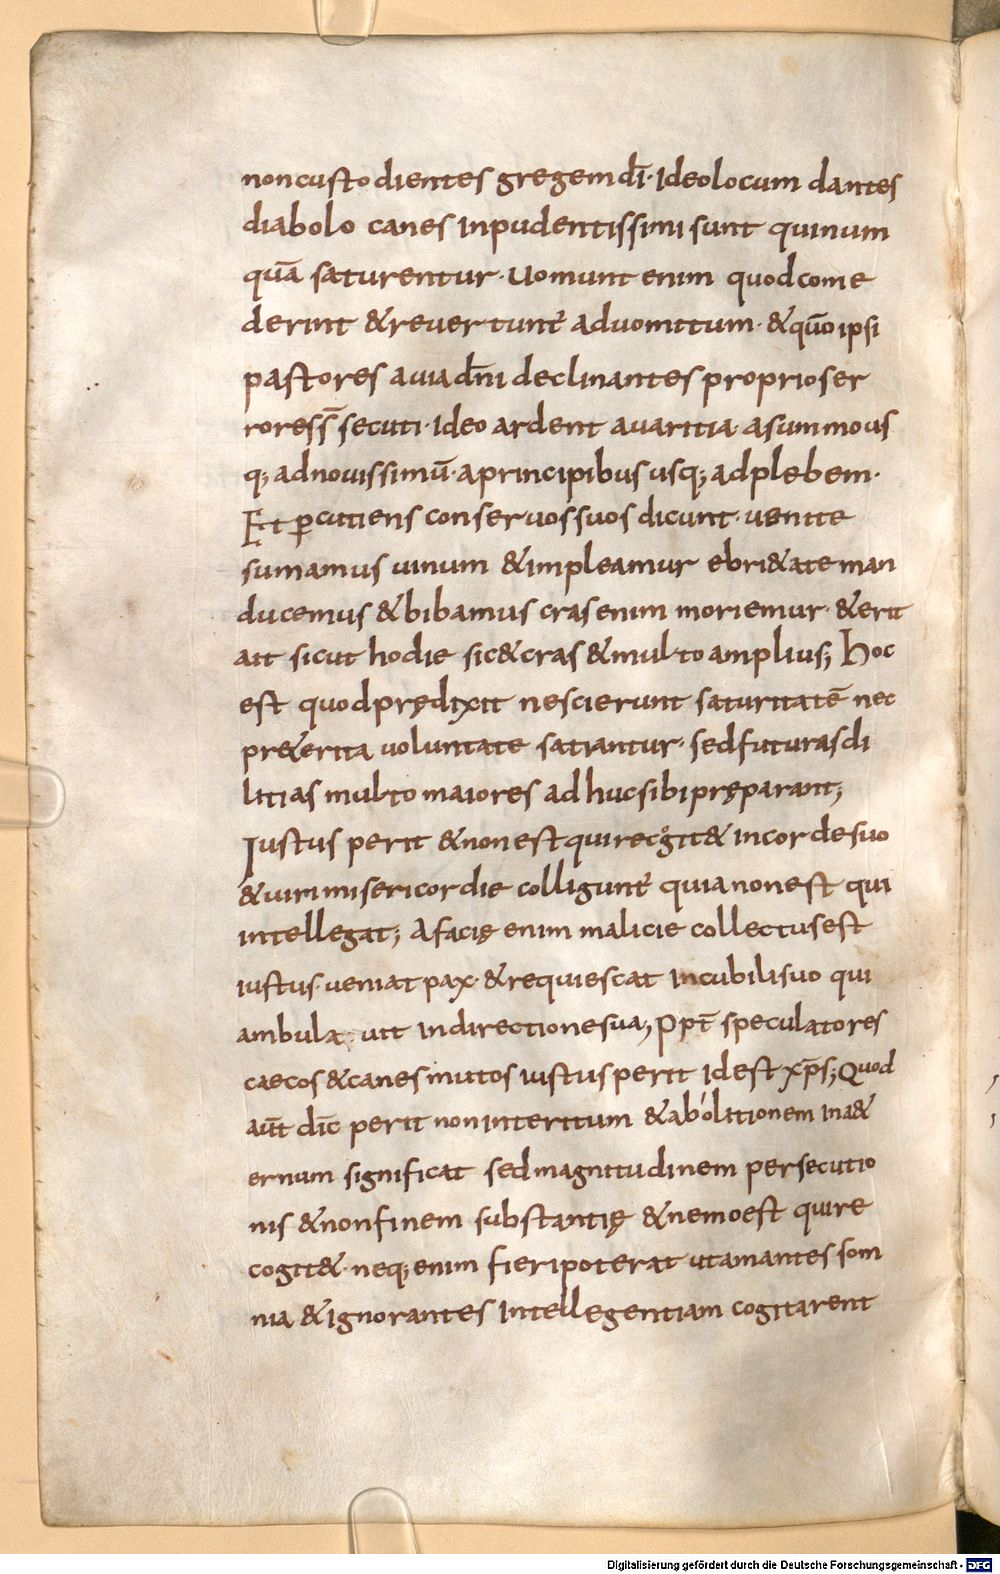 noncustodientes gregem dī· Ideo locum dantes
diabolo canes inpudentissimi sunt qui num
quā saturentur· Uomunt enim quod come
derint & reuertunt̄ ad uomitum· & quō ipsi
pastores a uia dn̄i declinantes proprios er
rores s̄ secuti· Ideo ardent auaritia· a summo us
q; ad nouissimū· a principibus usq; ad plebem·
Et ꝑcutiens conseruos suos dicunt· uenite
sumamus uinum & impleamur ebri&ate man
ducemus & bibamus cras enim moriemur· & erit
ait sicut hodie sic & cras & multo amplius; Hoc
est quod prędixit nescierunt saturitatē nec
pr&erita uoluntate satiantur· sed futuras di
litias multo maiores adhuc sibi pręparant;
Iustus perit & non est qui recogit& in corde suo
& uiri misericordie colligunt̄ quia non est qui
intellegat; A facię enim malicie collectus est
iustus· ueniat pax· & requiescat in cubili suo qui
ambula uit in directione sua, Ppt̄ speculatores
caecos & canes mutos iustus perit id est xp̄s; Quod
aūt dic̄ perit non interitum & abolitionem in a&
ernum significat sed magnitudinem persecutio
nis & non finem substantię & nemo est qui re
cogit&· neq; enim fieri poterat ut amantes som
nia & ignorantes intellegentiam cogitarent
Digitalisierung gefördert durch die Deutsche Forschungsgemeinschaft - DFG